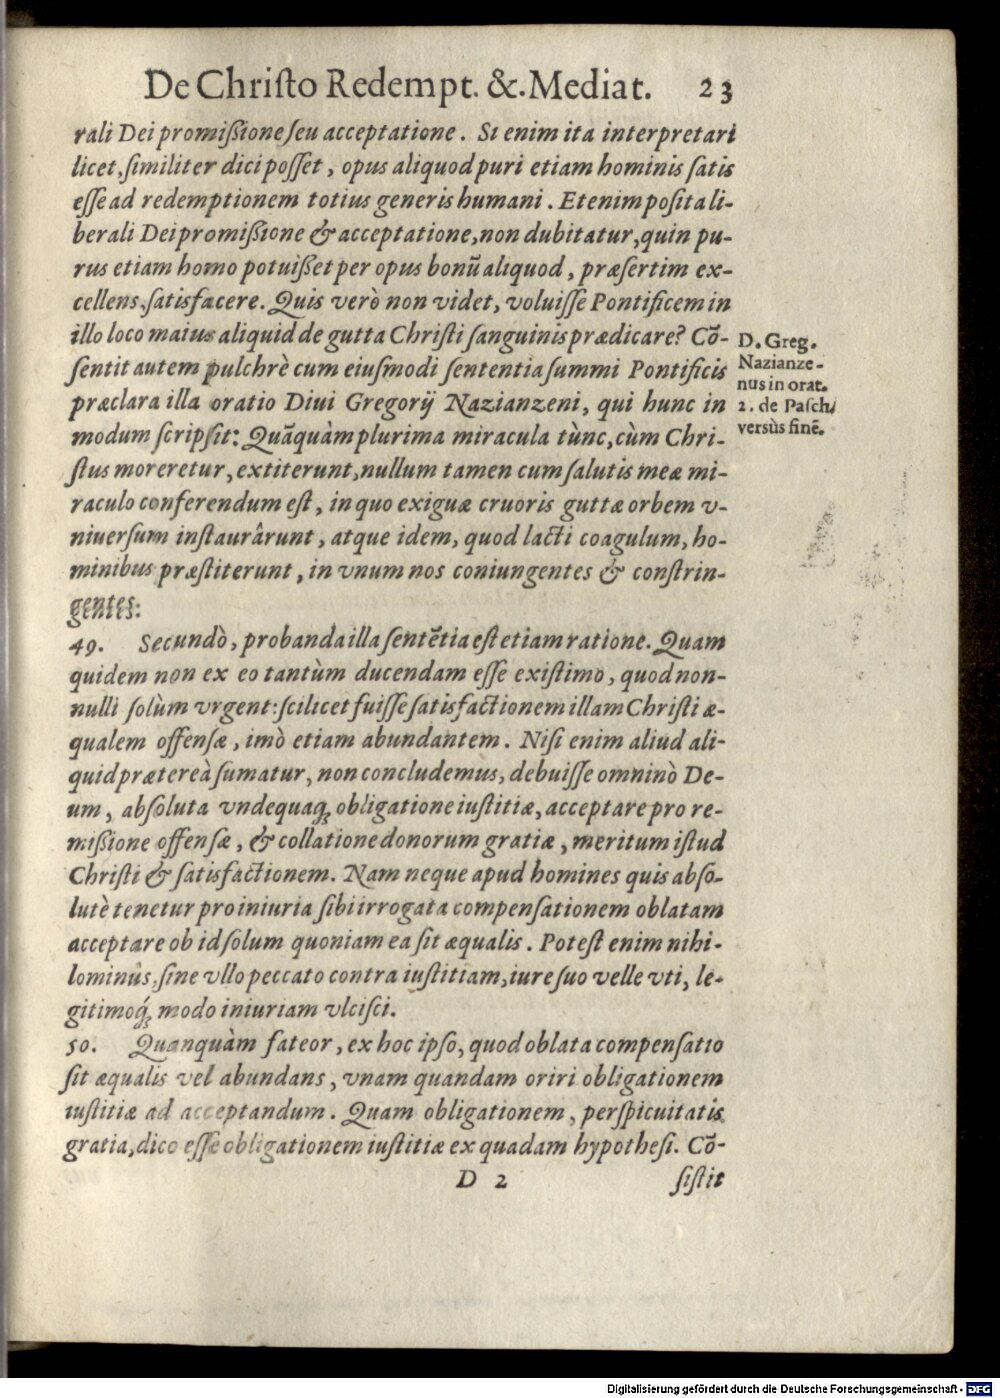 De Chriſto Redempt. &. Mediat. 23
rali Dei promißione ſeu acceptatione. Si enim ita interpretari
licet, ſimiliter dici poſſet, opus aliquod puri etiam hominis ſatis
eſſe ad redemptionem totius generis humani. Etenim poſita li-
berali Dei promißione & acceptatione, non dubitatur, quin pu-
rus etiam homo potuißet per opus bonũ aliquod, præſertim ex-
cellens, ſatisfacere. Quis verò non videt, voluiſſe Pontificem in
illo loco maius aliquid de gutta Chriſti ſanguinis prædicare? Cō-
ſentit autem pulchrè cum eiuſmodi ſententia ſummi Pontificis
præclara illa oratio Diui Gregorij Nazianzeni, qui hunc in
modum ſcripſit: Quāquàm plurima miracula tùnc, cùm Chri-
ſtus moreretur, extiterunt, nullum tamen cum ſalutis meæ mi-
raculo conferendum eſt, in quo exiguæ cruoris guttæ orbem v-
niuerſum inſtaurârunt, atque idem, quod lacti coagulum, ho-
minibus præſtiterunt, in vnum nos coniungentes & conſtrin-
gentes:
D. Greg.
Nazianze-
nus in orat.
2. de Paſch.
versùs finē.
49. Secundò, probanda illa ſentētia eſt etiam ratione. Quam
quidem non ex eo tantùm ducendam eſſe exiſtimo, quod non-
nulli ſolùm vrgent: ſcilicet fuiſſe ſatisfactionem illam Chriſti æ-
qualem offenſæ, imò etiam abundantem. Niſi enim aliud ali-
quid prætereà ſumatur, non concludemus, debuiſſe omninò De-
um, abſoluta vndequaq́ꝫ obligatione iuſtitiæ, acceptare pro re-
mißione offenſæ, & collatione donorum gratiæ, meritum iſtud
Chriſti & ſatisfactionem. Nam neque apud homines quis abſo-
lutè tenetur pro iniuria ſibi irrogata compenſationem oblatam
acceptare ob id ſolum quoniam ea ſit æqualis. Poteſt enim nihi-
lominùs, ſine vllo peccato contra iuſtitiam, iure ſuo velle vti, le-
gitimoq́ꝫ modo iniuriam vlciſci.
50. Quanquàm fateor, ex hoc ipſo, quod oblata compenſatio
ſit æqualis vel abundans, vnam quandam oriri obligationem
iuſtitiæ ad acceptandum. Quam obligationem, perſpicuitatis
gratia, dico eſſe obligationem iuſtitiæ ex quadam hypotheſi. Cō-
D 2 ſiſtit
Digitalisierung gefördert durch die Deutsche Forschungsgemeinschaft - DFG